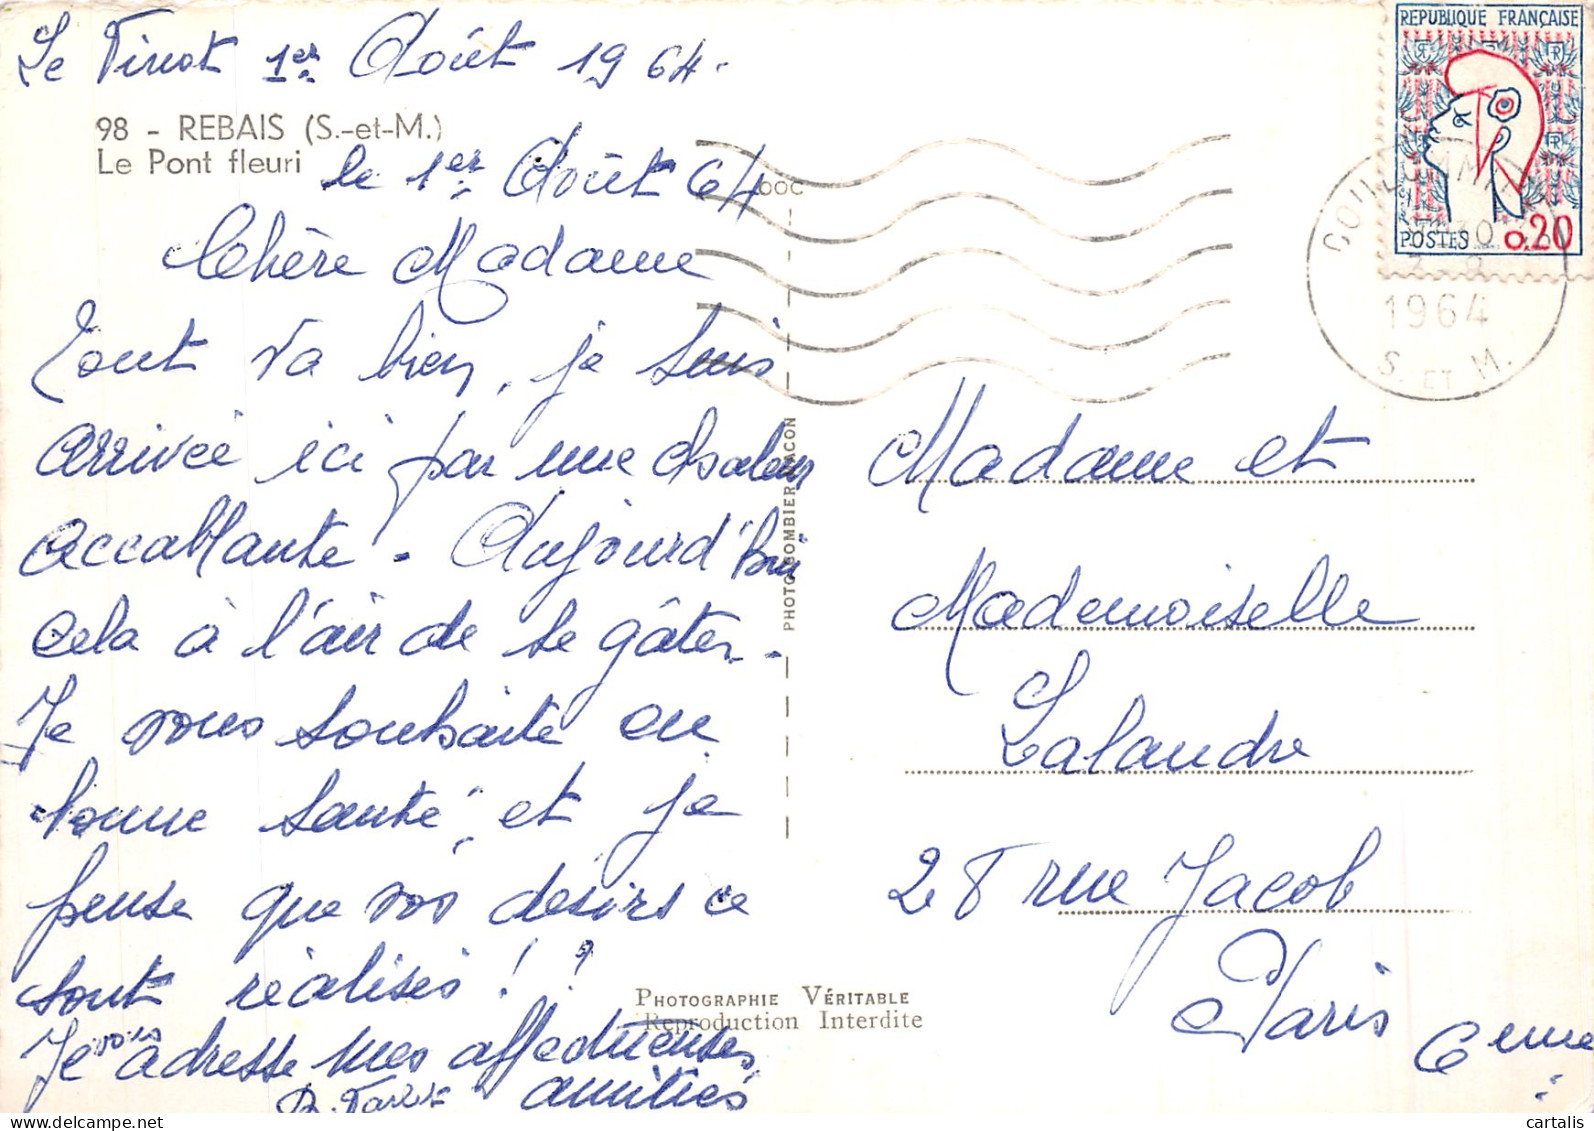 Le Pinot 1er Août 1964.
98 - REBAIS (S.-et-M.)
Le Pont fleuri
le 1er Août 64
Chère Madame
Tout va bien, je suis
arrivée ici par une chaleur
accablante. Aujourd'hui
cela à l'air de se gâter.
Je vous souhaite en
bonne santé, et je
pense que vos désirs ce
sont réalisés ! ?
Je vous adresse mes affectueuses
amitiés
PHOTO COMBIER MACON
Madame et
Mademoiselle
Lalandre
28 rue Jacob
Paris 6eme
PHOTOGRAPHIE VÉRITABLE
Reproduction Interdite
REPUBLIQUE FRANÇAISE
POSTES 0,20
COULOMMIERS
1964
S. ET M.
cartalis
www.delcampe.net